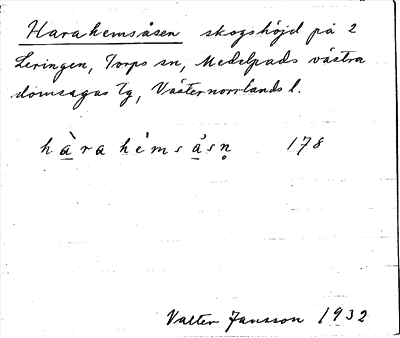 Harahemsåsen skogshöjd på 2
Leringen, Torps sn, Medelpads västra
domsagas tg, Västernorrlands l.
hàrahémsåsn̥ 178
Valter Jansson 1932